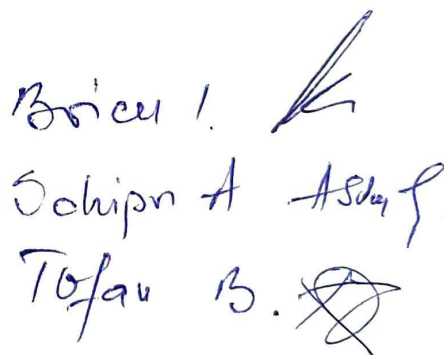 Bricu I.
Schipor A
Tofan B.